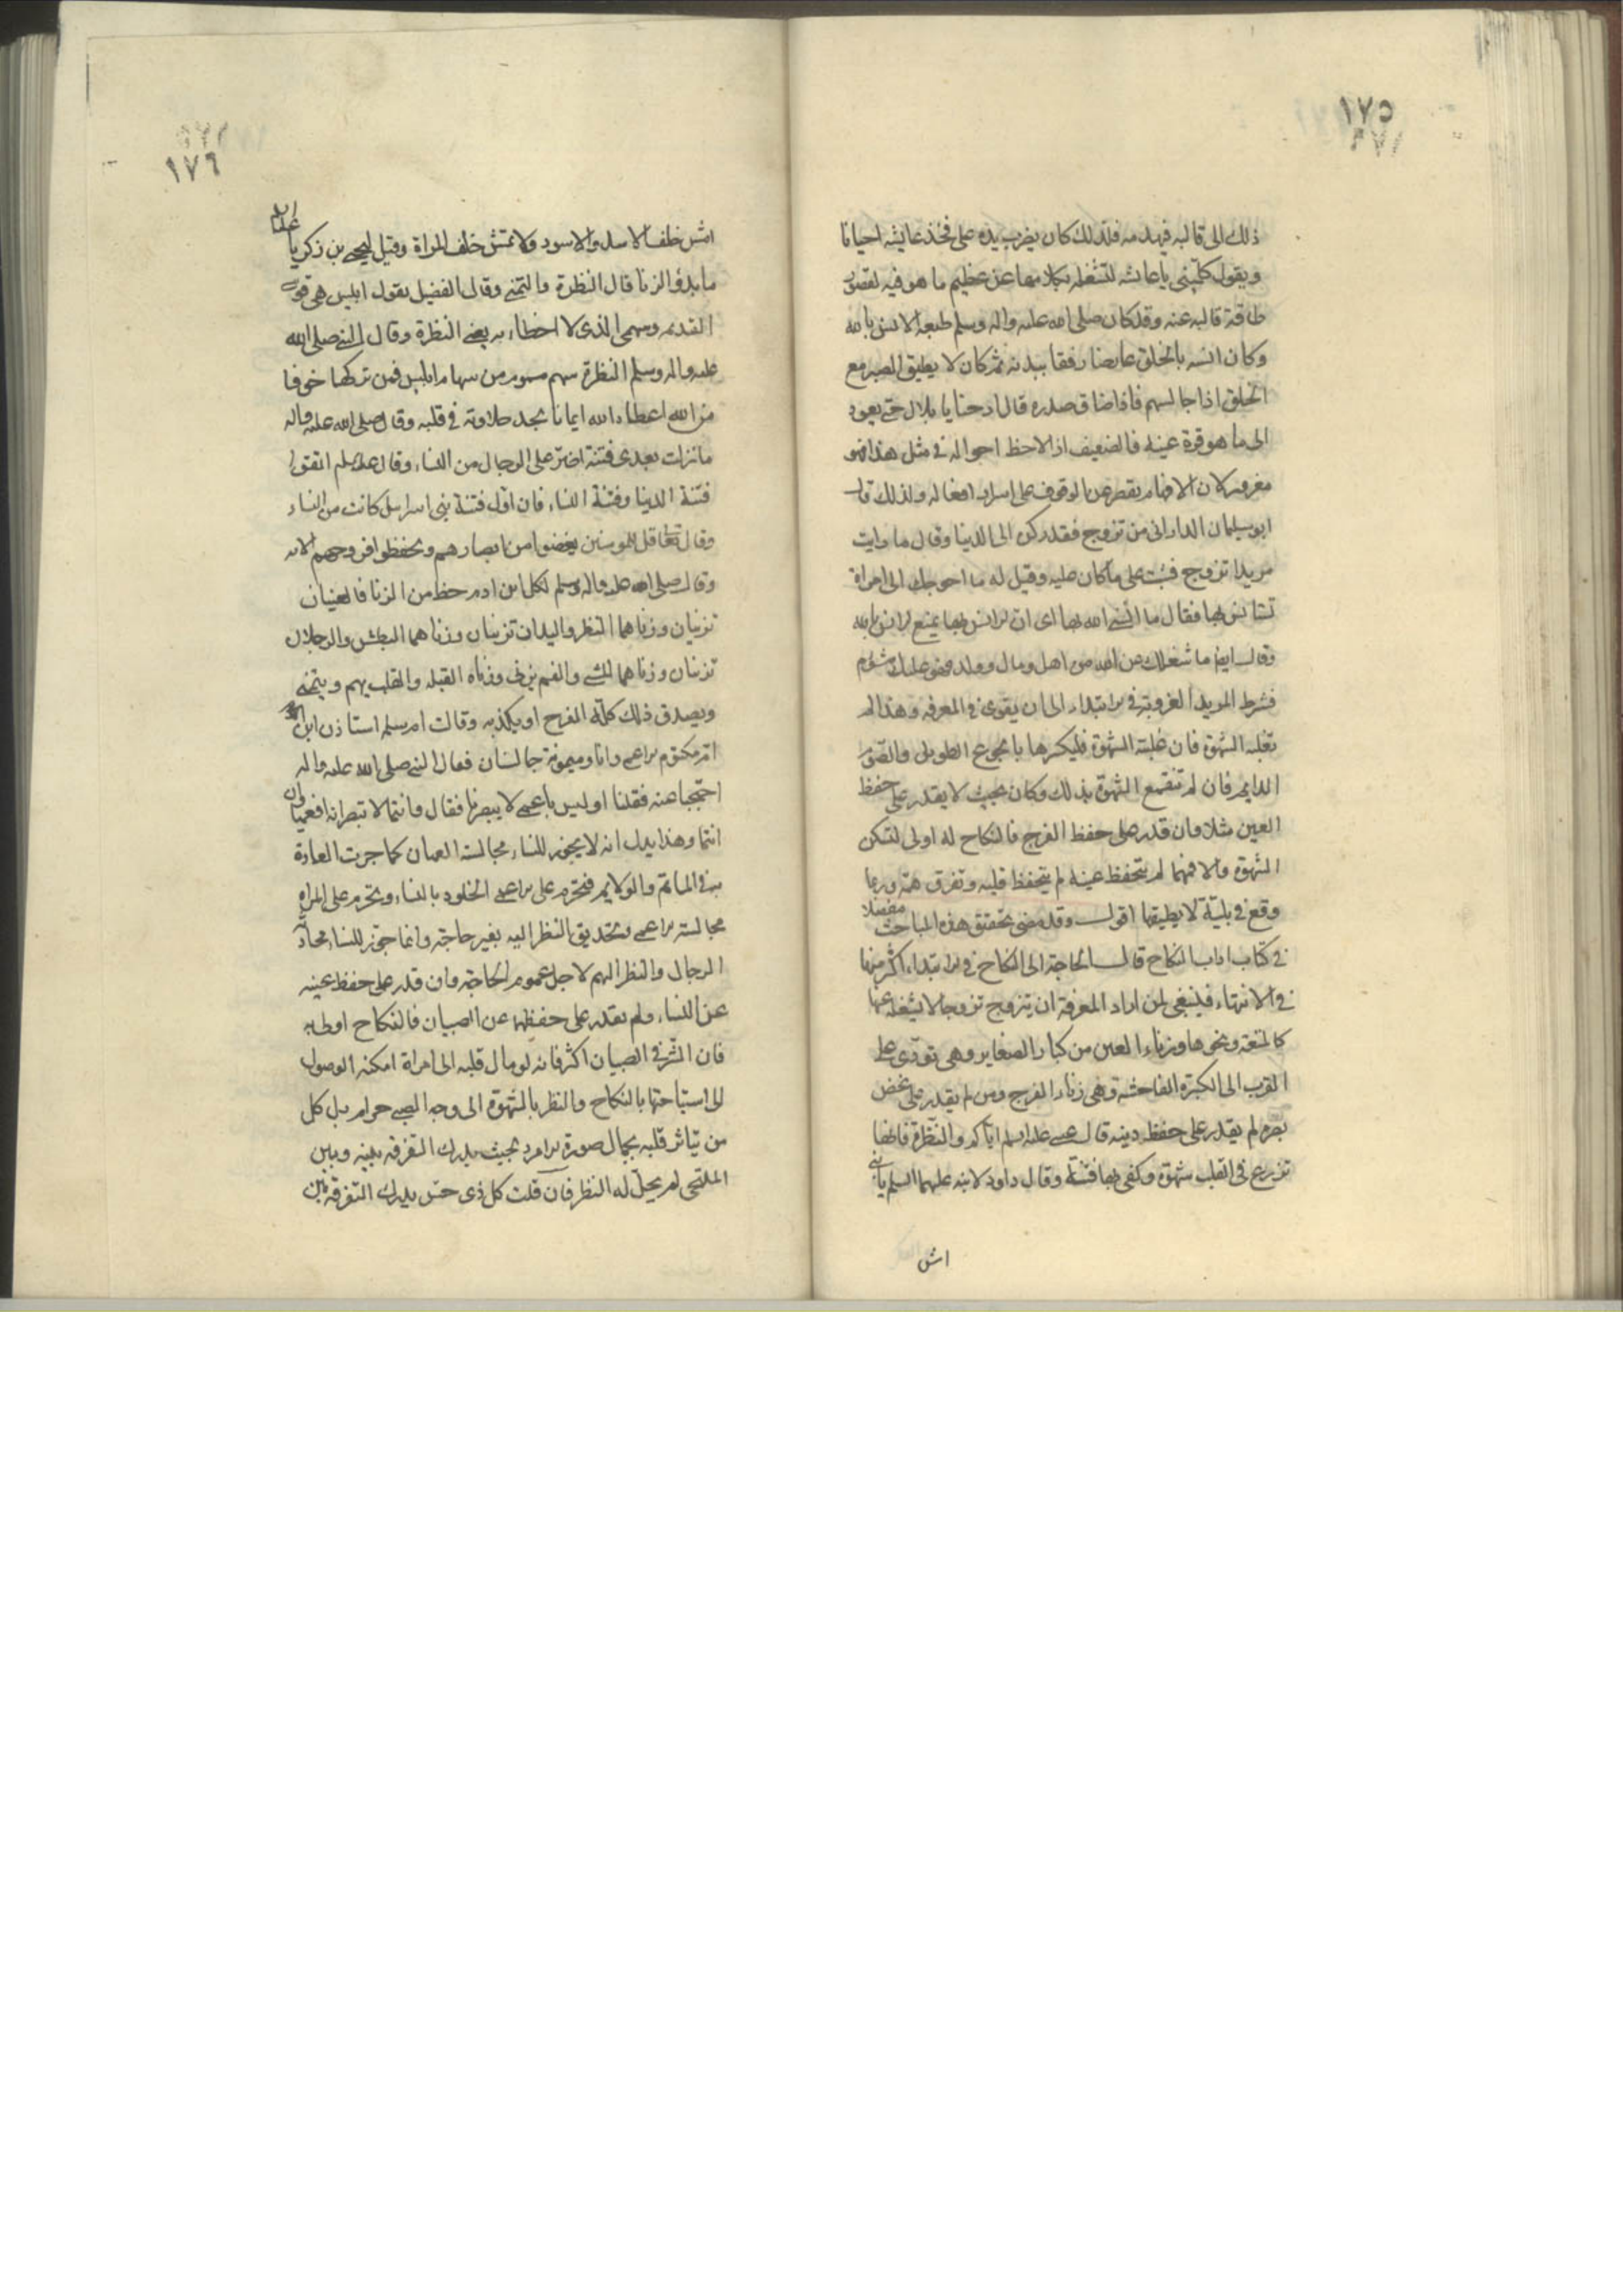 ١٧٥
ذلك الى قالبه فيهدمه فلذلك كان يضرب بيده على فخذ عايشه احيانا
ويقول كلّميني يا عائشه لتشغله بكلامها عن عظيم ما هو فيه لقصور
طاقة قالبه عنه وقد كان صلى الله عليه واله وسلم طبعه الانس بالله
وكان انسه بالخلق عارضا رفقا ببدنه ثم كان لا يطيق الصبر مع
الخلق اذا جالسهم فاذا ضاق صدره قال ارحنا يا بلال حتى يعود
الى ما هو قرة عينه فالضعيف اذا لاحظ احواله في مثل هذا فهو
مغرور لان الافهام يقصر عن الوقوف على اسرار افعاله ولذلك قال
ابو سليمان الداراني من تزوج فقد ركن الى الدنيا وقال ما رايت
مريدا تزوج فثبت على ما كان عليه وقيل له ما احوجك الى امراة
تستانس بها فقال ما آنسني الله بها اى ان الانس بها يمنع الانس بالله
وقال ايضا ما شغلك عن الله من اهل ومال وولد فهو عليك مشئوم
فشرط المريد العزوبة في الابتداء الى ان يقوى في المعرفة وهذا لم
تغلبه الشهوة فان غلبته الشهوة فليكسرها بالجوع الطويل والصّوم
الدايم فان لم تنقمع الشهوة بذلك وكان بحيث لا يقدر على حفظ
العين مثلا وان قدر على حفظ الفرج فالنكاح له اولى لتسكن
الشهوة والا فمهما لم يتحفظ عينه لم يتحفظ قلبه وتفرق همّه وربما
وقع في بليّة لا يطيقها اقول وقد مضى تحقيق هذه المباحث مفصّلا
في كتاب اداب النكاح قال الحاجة الى النكاح في الابتداء اكثر منها
في الانتهاء فلينبغى لمن اراد المعرفة ان يتزوج تزوجا لا يشغله عنها
كالمتعة ونحوها وزناء العين من كبار الصغاير وهى تؤدّى على
القرب الى الكبيرة الفاحشة وهى زناء الفرج ومن لم يقدر على غض
بصره لم يقدر على حفظ دينه قال عيسى عليه السلم ايّاكم والنّظرة فانها
تزرع في القلب شهوة وكفى بها فتنة وقال داود لابنه عليهما السلم يا بنى
امش
١٧٦
امش خلف الاسد والاسود ولا تمش خلف المراة وقيل ليحيى بن زكريا
ما بدؤ الزنا قال النظرة والتمنى وقال الفضيل يقول ابليس هى قوسى
القديمه وسهمى الذى لا اخطاء به يعنى النظرة وقال النبى صلى الله
عليه واله وسلم النظرة سهم مسموم من سهام ابليس فمن تركها خوفا
من الله اعطاه الله ايمانا يجد حلاوته في قلبه وقال صلى الله عليه واله
ما تركت بعدى فتنة اضرّ على الرجال من النساء وقال عليه السلم اتقوا
فتنة الدنيا وفتنة النساء فان اوّل فتنة بنى اسرائيل كانت من النساء
وقال تعالى قل للمومنين يغضوا من ابصارهم ويحفظوا فروجهم الايه
وقال صلى الله عليه واله وسلم لكل ابن ادم حظ من الزنا فالعينان
تزنيان وزناهما النظر واليدان تزنيان وزناهما البطش والرجلان
تزنيان وزناهما المشى والفم يزنى وزناه القبله والقلب يهم ويتمنى
ويصدق ذلك كلّه الفرج او يكذبه وقالت ام سلمه استاذن ابن
امّ مكتوم الاعمى وانا وميمونة جالستان فقال النبى صلى الله عليه واله
احتجبا عنه فقلنا اوليس باعمى لا يبصرنا فقال وانتما لا تبصرانه افعمياوان
انتما وهذا يدل انه لا يجوز للنساء مجالسة العميان كما جرت العادة
به في الماتم والولايم فيحرم على الاعمى الخلوة بالنساء ويحرم على المراه
مجالسة الاعمى وتحديق النظر اليه بغير حاجة وانما جوّز للنساء محادثة
الرجال والنظر اليهم لاجل عموم الحاجة وان قدر على حفظ عينه
عن النساء ولم يقدر على حفظها عن الصبيان فالنكاح اولى به
فان الشّر في الصبيان اكثر فانه لو مال قلبه الى امراة امكنه الوصول
الى استباحتها بالنكاح والنظر بالشهوة الى وجه الصبى حرام بل كل
من يتاثر قلبه بجمال صورة الامرد بحيث يدرك التفرقه بينه وبين
الملتحى لم يحلّ له النظر فان قلت كل ذى حسّ يدرك التفرقه بين